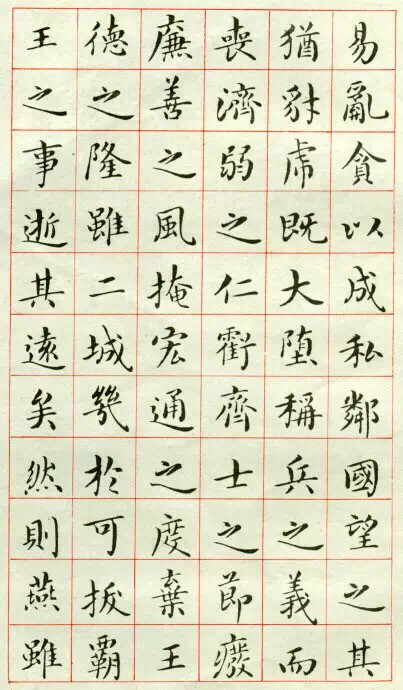 易亂貪以成私鄰國望之其
猶豺虎既大堕稱兵之義而
喪濟弱之仁虧齊士之節癈
廉善之風掩宏通之度棄王
德之隆雖二城幾於可拔霸
王之事逝其遠矣然則燕雖